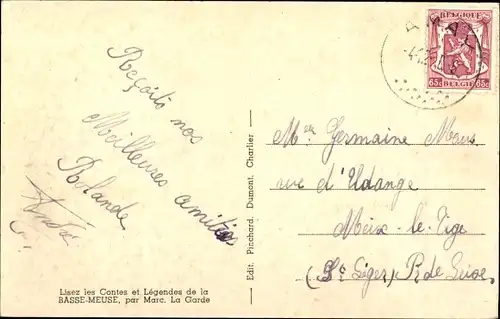 Reçoito nos
Meilleures amitiés
Rolande
André
Lisez les Contes et Légendes de la
BASSE-MEUSE, par Marc. La Garde
Edit. Pinchard, Dumont, Charlier
BELGIQUE
65c 65c
BELGIE
AMAY
Mer Germaine Maus
rue d'Udange
Meix-le-Tige
(St Léger) P. de Seise.